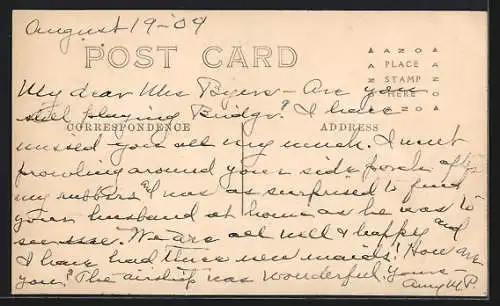 August 19-09
POST CARD
AZO
PLACE
STAMP
HERE
AZO
My dear Mrs Byers - Are you
still playing Bridge? I have
CORRESPONDENCE
ADDRESS
missed you all very much. I went
prowling around your side porch after
my rubbers and was as surprised to find
your husband at home as he was to
see me. We are all well & happy and
I have had three new maids! How are
you? The airship was wonderful. Yours -
Amy M. P.